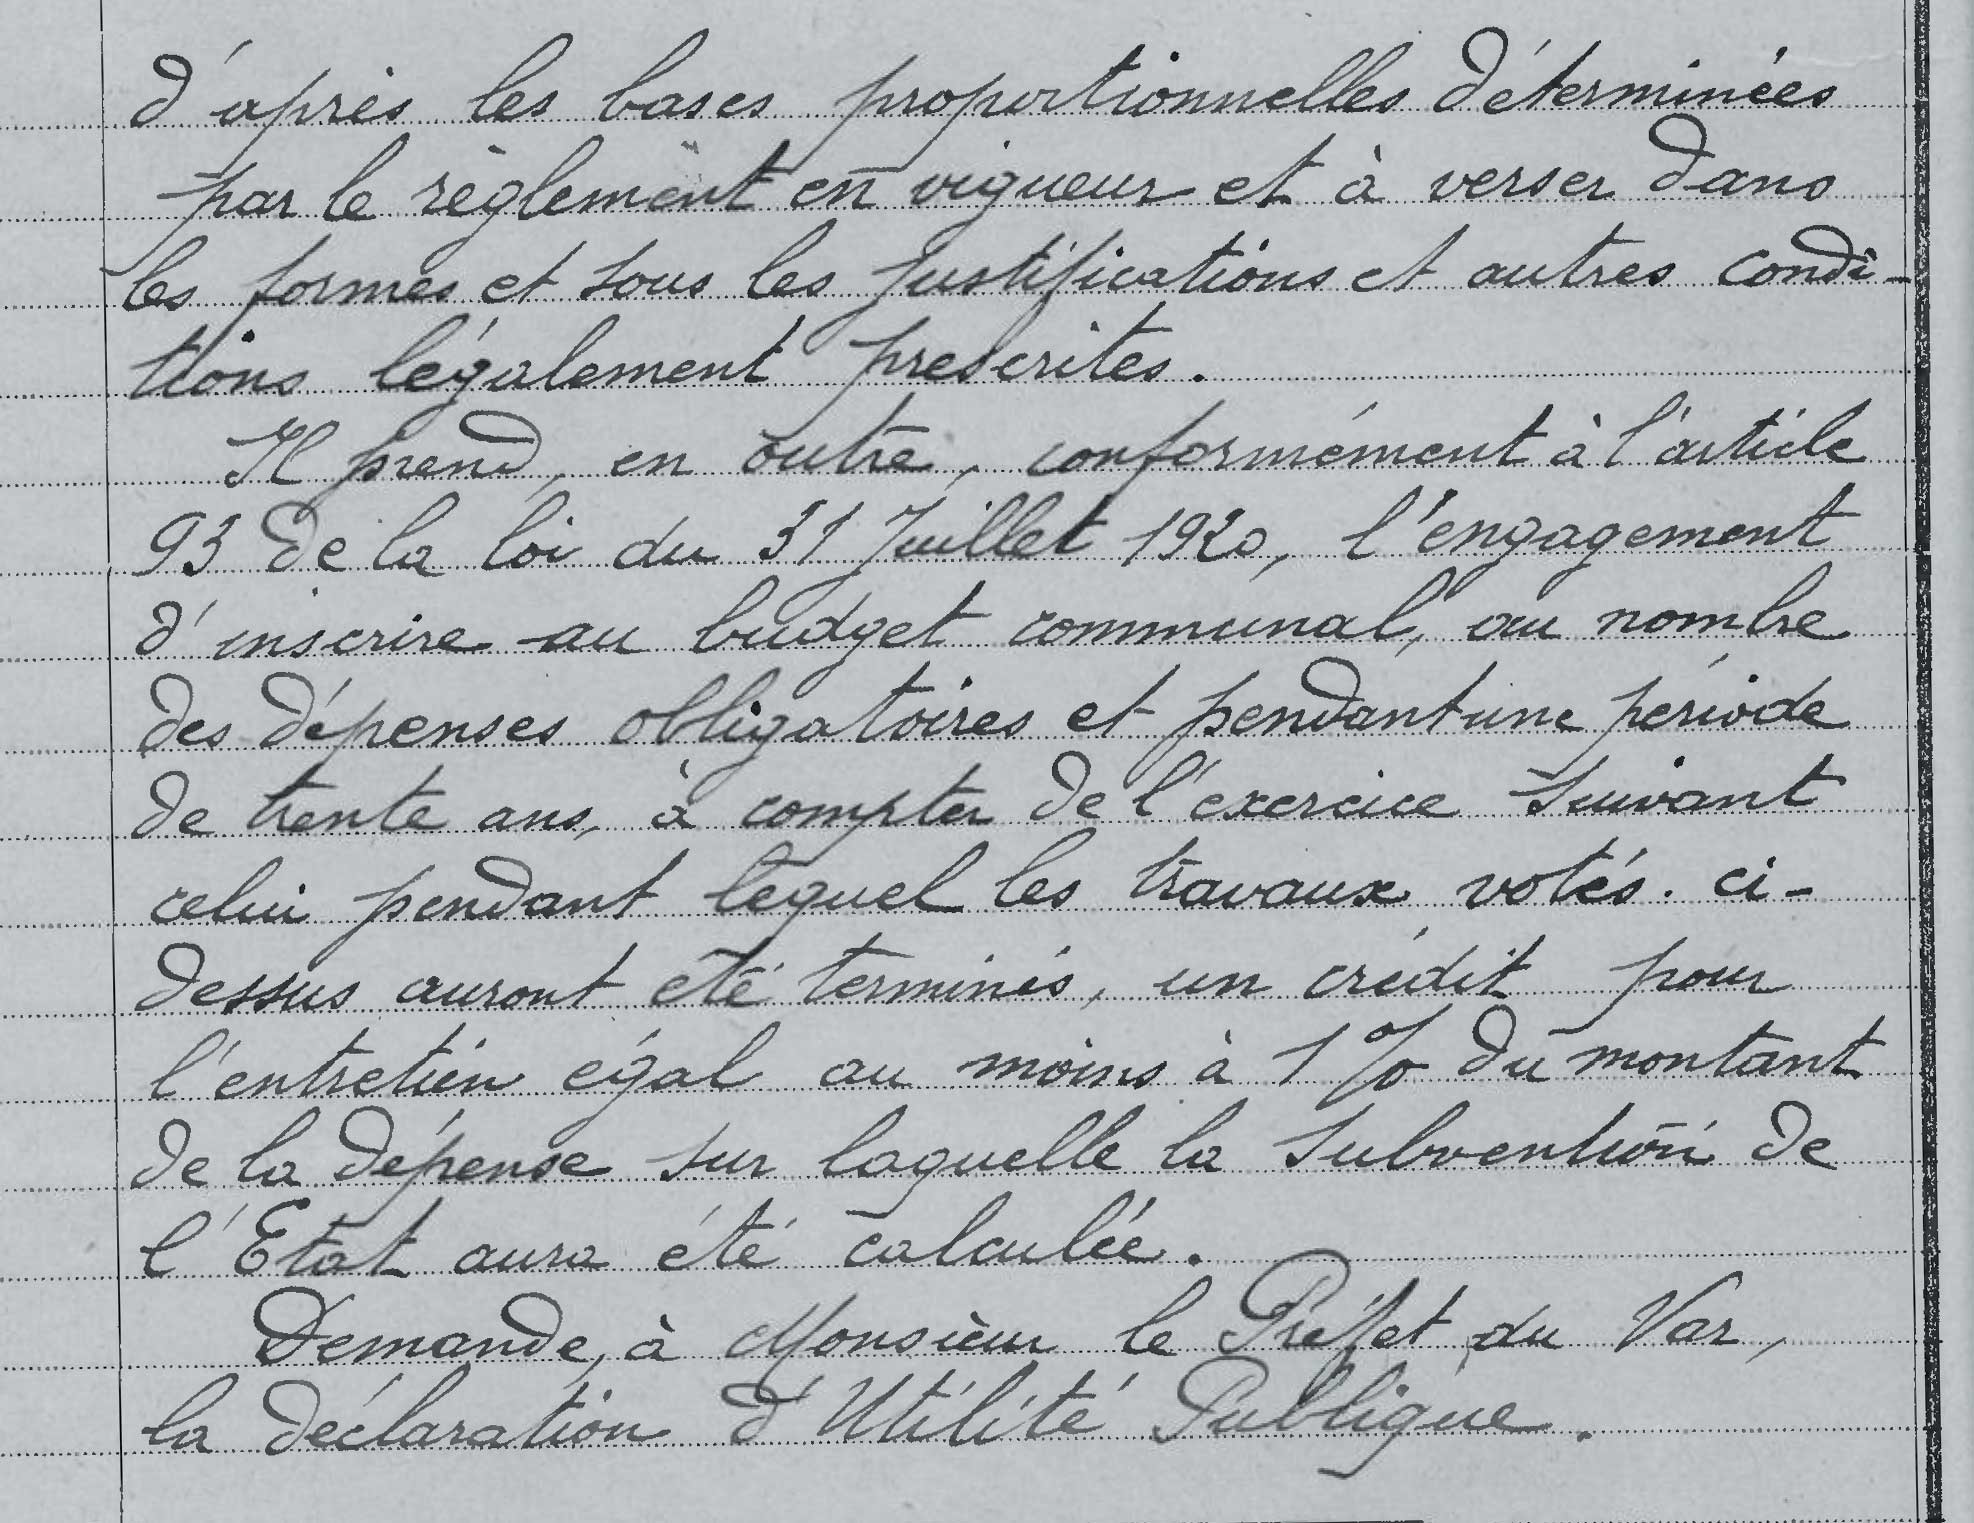 d'après les bases proportionnelles déterminées
par le règlement en vigueur et à verser dans
les formes et sous les justifications et autres condi-
tions légalement prescrites.
Il prend, en outre, conformément à l'article
93 de la loi du 31 Juillet 1920, l'engagement
d'inscrire au budget communal, au nombre
des dépenses obligatoires et pendant une période
de trente ans, à compter de l'exercice suivant
celui pendant lequel les travaux votés ci-
dessus auront été terminés, un crédit pour
l'entretien égal au moins à 1% du montant
de la dépense sur laquelle la subvention de
l'Etat aura été calculée.
Demande, à Monsieur le Préfet du Var,
la déclaration d'Utilité Publique.